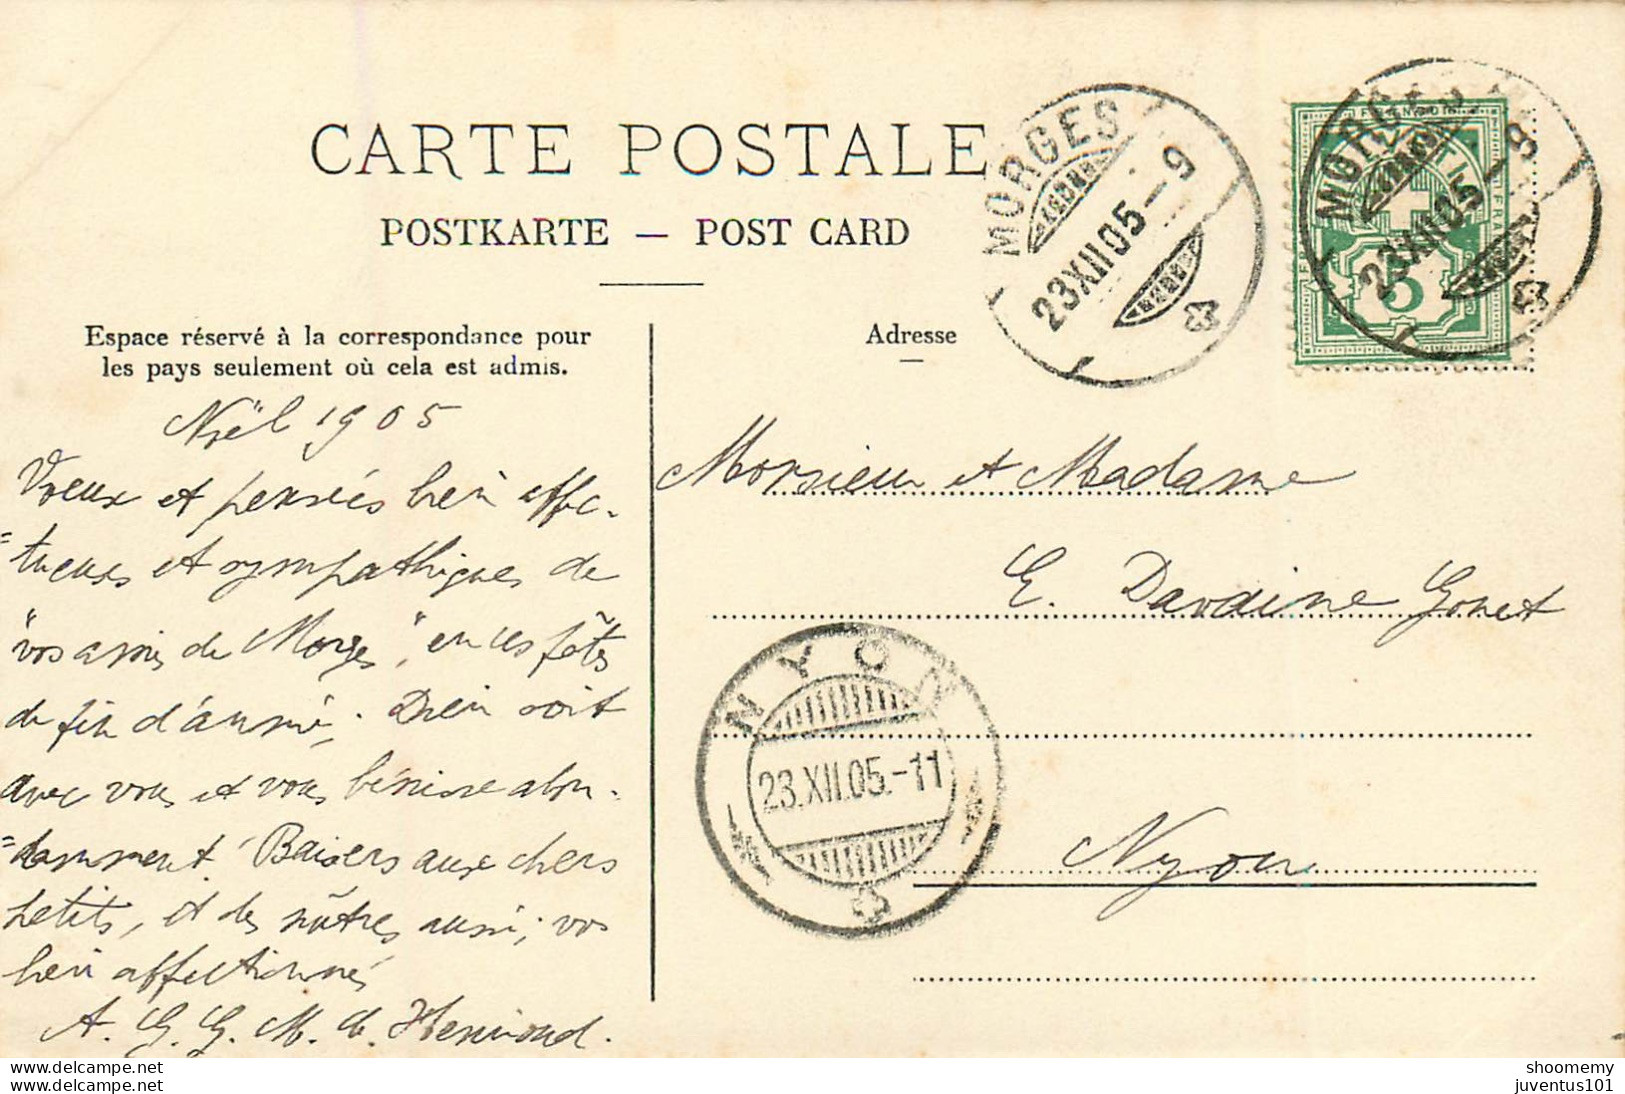 CARTE POSTALE
POSTKARTE — POST CARD
Espace réservé à la correspondance pour
les pays seulement où cela est admis.
Adresse
MORGES
23.XII.05.–9
MORGES
23.XII.05.–8
FRANCO
5
Noël 1905
Voeux et pensées bien affec-
=tueuses et sympathiques de
"vos amis de Morges", en ces fêtes
de fin d'année. Dieu soit
avec vous et vous bénisse abon-
=damment. Baisers aux chers
petits, et des nôtres aussi; vos
bien affectionnés
A. G. G. M. de
Monsieur et Madame
E. Davoine Gonet
Nyon
NYON
23.XII.05.–11
www.delcampe.net
www.delcampe.net
shoomemy
juventus101